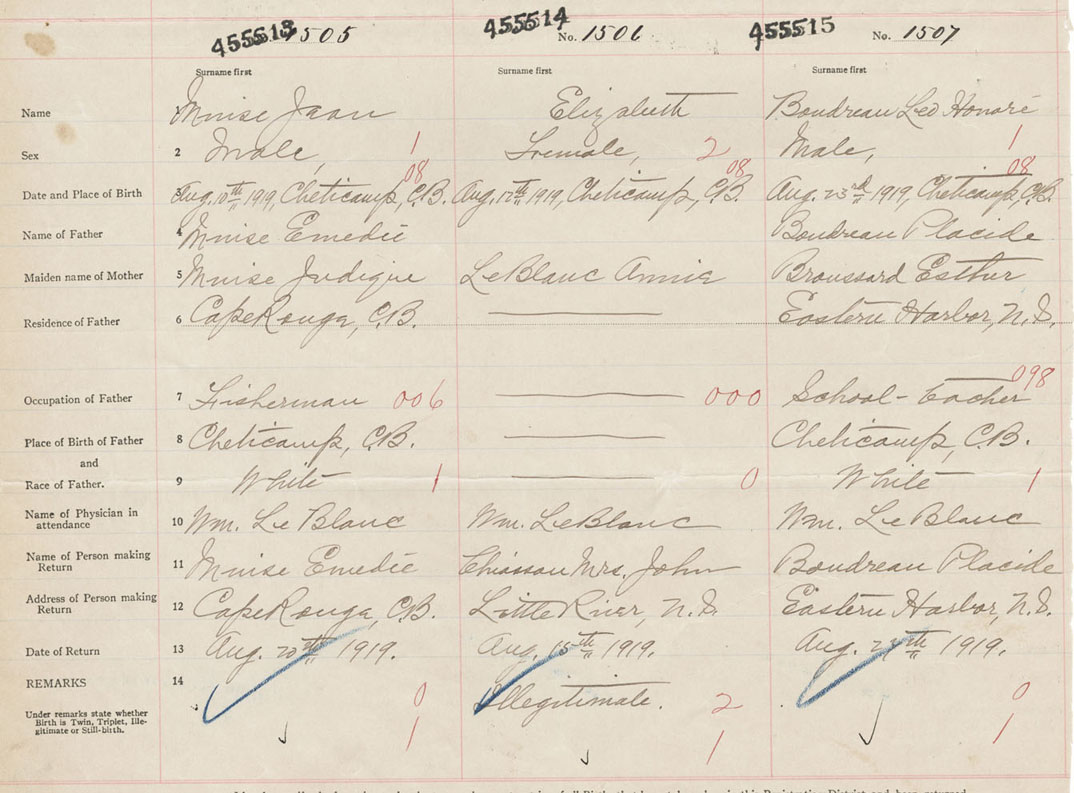 455513 1505 455514 No. 1506 455515 No. 1507
Surname first Surname first Surname first
Name Muise Jean Elizabeth Boudreau Leo Honoré
Sex 2 Male, 1 Female, 2 Male, 1
08 08 08
Date and Place of Birth 3 Aug. 10th 1919, Cheticamp, C.B. Aug. 12th 1919, Cheticamp, C.B. Aug. 23rd 1919, Cheticamp, C.B.
Name of Father 4 Muise Emedie Boudreau Placide
Maiden name of Mother 5 Muise Judique LeBlanc Annie Broussard Esther
Residence of Father 6 Cape Rouge, C.B. Eastern Harbor, N.S.
098
Occupation of Father 7 Fisherman 006 000 School-teacher
Place of Birth of Father 8 Cheticamp, C.B. Cheticamp, C.B.
and
Race of Father. 9 White 1 0 White 1
Name of Physician in
attendance 10 Wm. LeBlanc Wm. LeBlanc Wm. LeBlanc
Name of Person making
Return 11 Muise Emedie Chiasson Mrs. John Boudreau Placide
Address of Person making
Return 12 Cape Rouge, C.B. Little River, N.S. Eastern Harbor, N.S.
Date of Return 13 Aug. 20th 1919. Aug. 15th 1919. Aug. th 1919.
REMARKS 14 0 Illegitimate. 2 0
Under remarks state whether
Birth is Twin, Triplet, Ille-
gitimate or Still-birth. 1 1 1